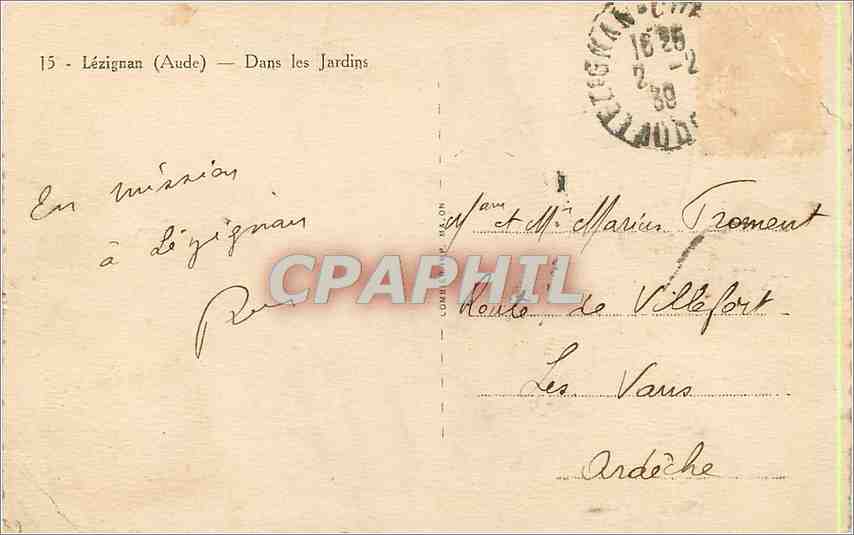 15 - Lézignan (Aude) — Dans les Jardins
LÉZIGNAN
16 25
2 -2
39
En mission
à Lézignan
CPAPHIL
COMBIER IMP. MACON
Mme et Mr Marius Froment
Route de Villefort
Les Vans
Ardèche